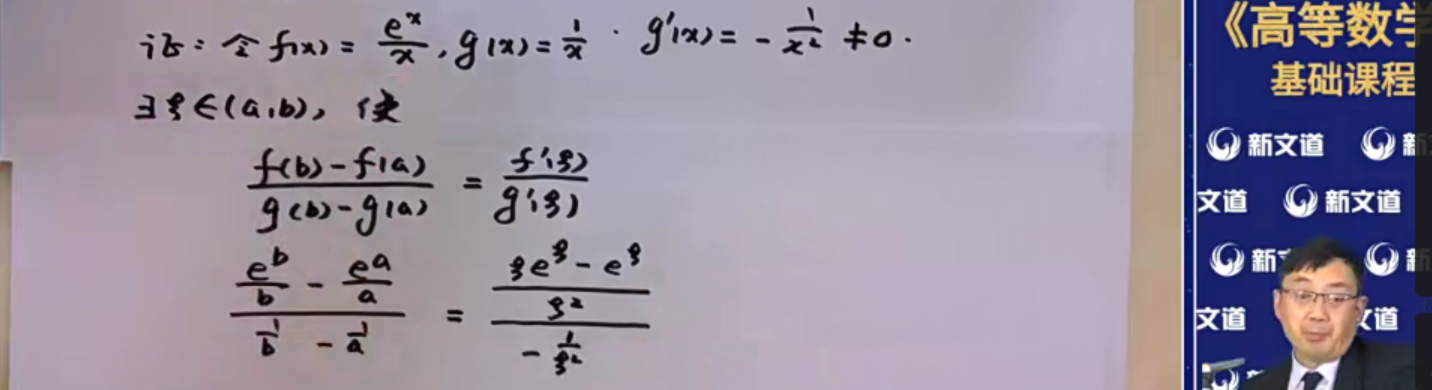 证：令 f(x) = e^x/x , g(x) = 1/x . g'(x) = - 1/x² ≠ 0 .
∃ ξ ∈ (a,b), 使
(f(b) - f(a)) / (g(b) - g(a)) = f'(ξ) / g'(ξ)
(e^b/b - e^a/a) / (1/b - 1/a) = ((ξe^ξ - e^ξ) / ξ²) / (- 1/ξ²)
《高等数学
基础课程
新文道 新
文道 新文道
新 新
文道 文道
新